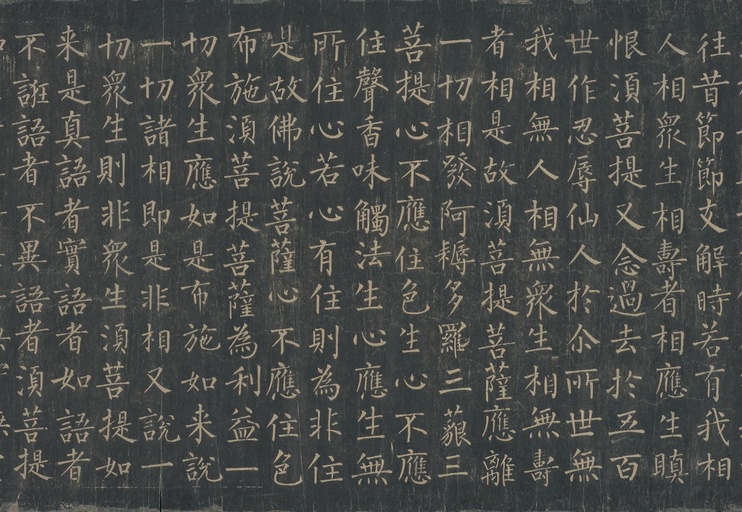 往昔節節支解時若有我相
人相眾生相壽者相應生瞋
恨須菩提又念過去於五百
世作忍辱仙人於尒所世無
我相無人相無眾生相無壽
者相是故須菩提菩薩應離
一切相發阿耨多羅三藐三
菩提心不應住色生心不應
住聲香味觸法生心應生無
所住心若心有住則為非住
是故佛說菩薩心不應住色
布施須菩提菩薩為利益一
切眾生應如是布施如来說
一切諸相即是非相又說一
切眾生則非眾生須菩提如
来是真語者實語者如語者
不誑語者不異語者須菩提